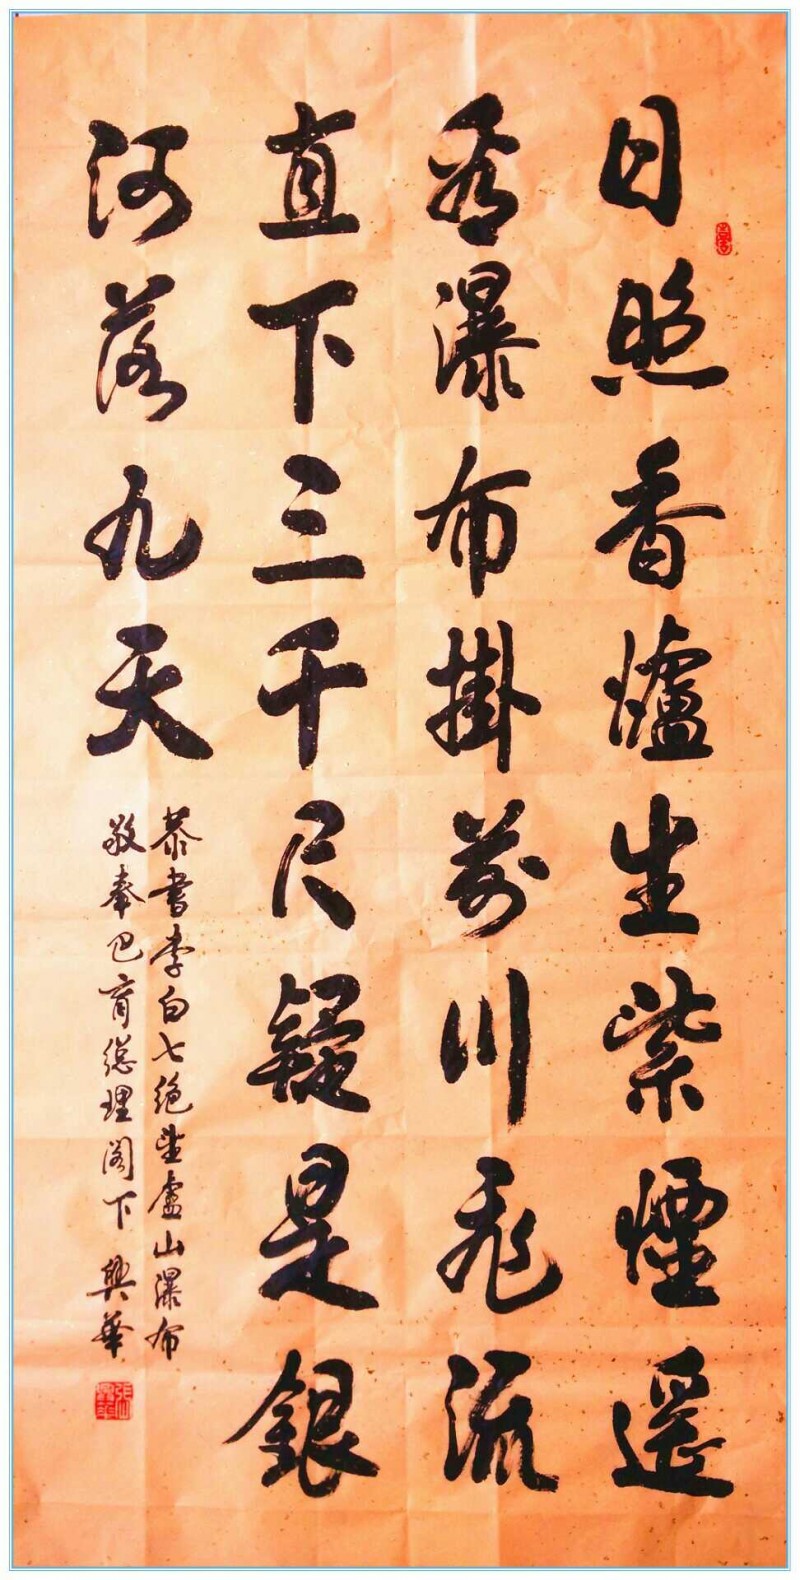 日照香爐生紫煙遙
看瀑布掛前川飛流
直下三千尺疑是銀
河落九天
恭書李白七絕望盧山瀑布
敬奉巴育總理閣下 興華